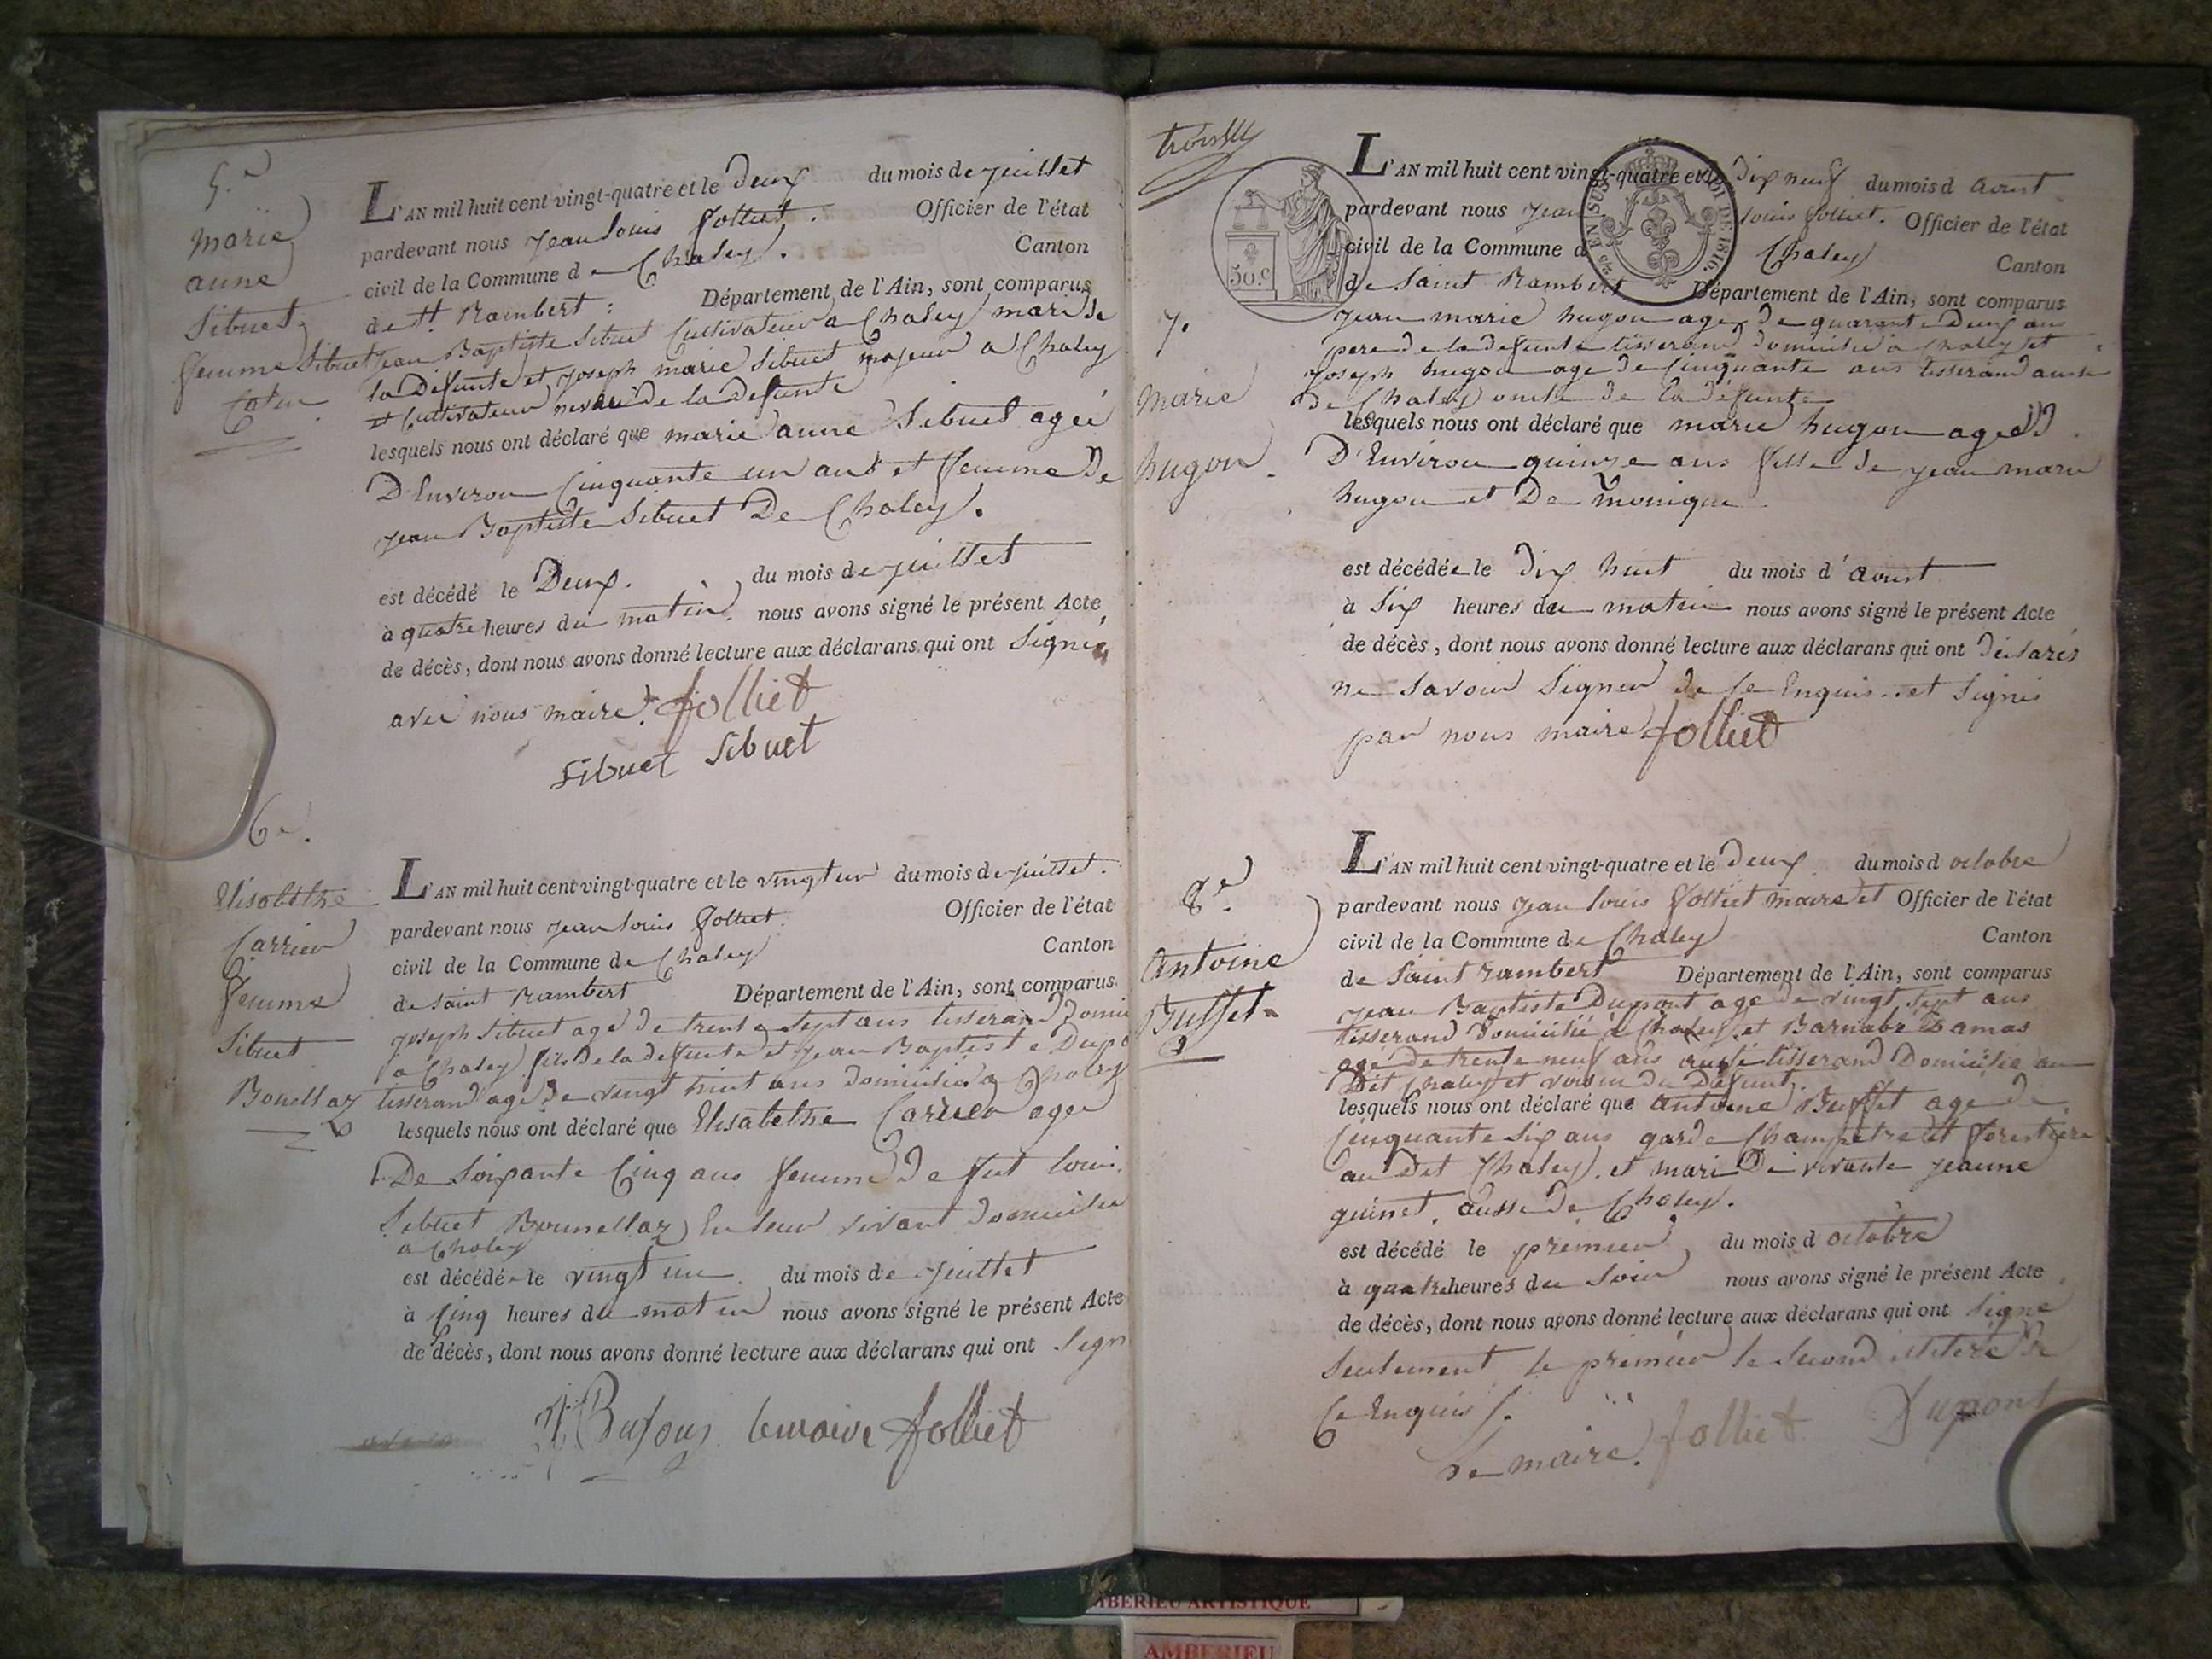 5.e
marie
anne
Sibuet
femme Sibuet
L'AN mil huit cent vingt-quatre et le deux du mois de juillet
pardevant nous jean louis folliet. Officier de l'état
civil de la Commune de Chaley. Canton
de St. Rambert : Département de l'Ain, sont comparus
jean Baptiste Sibuet Cultivateur a Chaley mari de
la défunte et joseph marie Sibuet majeur a Chaley
et Cultivateur neveu de la defunte
lesquels nous ont déclaré que marie anne Sibuet agée
D'Environ Cinquante un ans et femme De
jean Baptiste Sibuet De Chaley.
est décédé le Deux. du mois de juillet
à quatre heures du matin. nous avons signé le présent Acte
de décès, dont nous avons donné lecture aux déclarans qui ont Signés
avec nous maire. folliet
Sibuet Sibuet
6e.
Elisabethe
Carrier
femme
Sibuet
Bonellaz
L'AN mil huit cent vingt-quatre et le vingt un du mois de juillet.
pardevant nous jean louis folliet. Officier de l'état
civil de la Commune de Chaley Canton
de saint Rambert Département de l'Ain, sont comparus
joseph Sibuet agé de trente sept ans tisserand Domi
a Chaley fils De la defunte et jean Baptiste Dupo
tisserand agé De vingt huit ans domicilié a Chaley
lesquels nous ont déclaré que Elisabethe Carrier agée
De Soixante Cinq ans femme De fut louis
Sibuet Bounellaz En leur vivant domicilié
a Chaley
est décédée le vingt un du mois de juillet
à Cinq heures du matin nous avons signé le présent Acte
de décès, dont nous avons donné lecture aux déclarans qui ont Sign
le maire folliet
50.c
EN SUS
LOI DE 1816.
7.
marie
hugon
L'AN mil huit cent vingt-quatre et le dix neuf du mois d aoust
pardevant nous jean louis folliet. Officier de l'état
civil de la Commune d Chaley Canton
de Saint Rambert Département de l'Ain, sont comparus
jean marie hugon agé de quarante Deux ans
pere de la defunte tisserand domicilié a Chaley et
joseph hugon agé de Cinquante ans tisserand aussi
de Chaley oncle de la défunte
lesquels nous ont déclaré que marie hugon agée
D'Environ quinze ans fille de jean marie
hugon et De monique
est décédée le dix huit du mois d'aoust
à Six heures du matin nous avons signé le présent Acte
de décès, dont nous avons donné lecture aux déclarans qui ont déclarés
ne savoir Signer de Ce Enquis. et Signés
par nous maire folliet
8e.
Antoine
Buffet
L'AN mil huit cent vingt-quatre et le deux du mois d octobre
pardevant nous jean louis folliet maire et Officier de l'état
civil de la Commune de Chaley Canton
de Saint rambert Département de l'Ain, sont comparus
jean Baptiste Dupont agé de vingt sept ans
tisserand domicilié à Chaley et Barnabé Damas
agé de trente neuf ans aussi tisserand Domicilié au
Dit Chaley et voisin du Défunt.
lesquels nous ont déclaré que antoine Buffet agé de
Cinquante Six ans garde Champetre et forestiere
au dit Chaley. et mari De vivante jeanne
guinet. aussi de Chaley.
est décédé le premier du mois d octobre
à quatre heures du Soir nous avons signé le présent Acte
de décès, dont nous avons donné lecture aux déclarans qui ont Signé
Seulement le premier le Second illiteré De
Ce Enquis
Le maire. folliet Dupont
AMBERIEU ARTISTIQUE
AMBERIEU